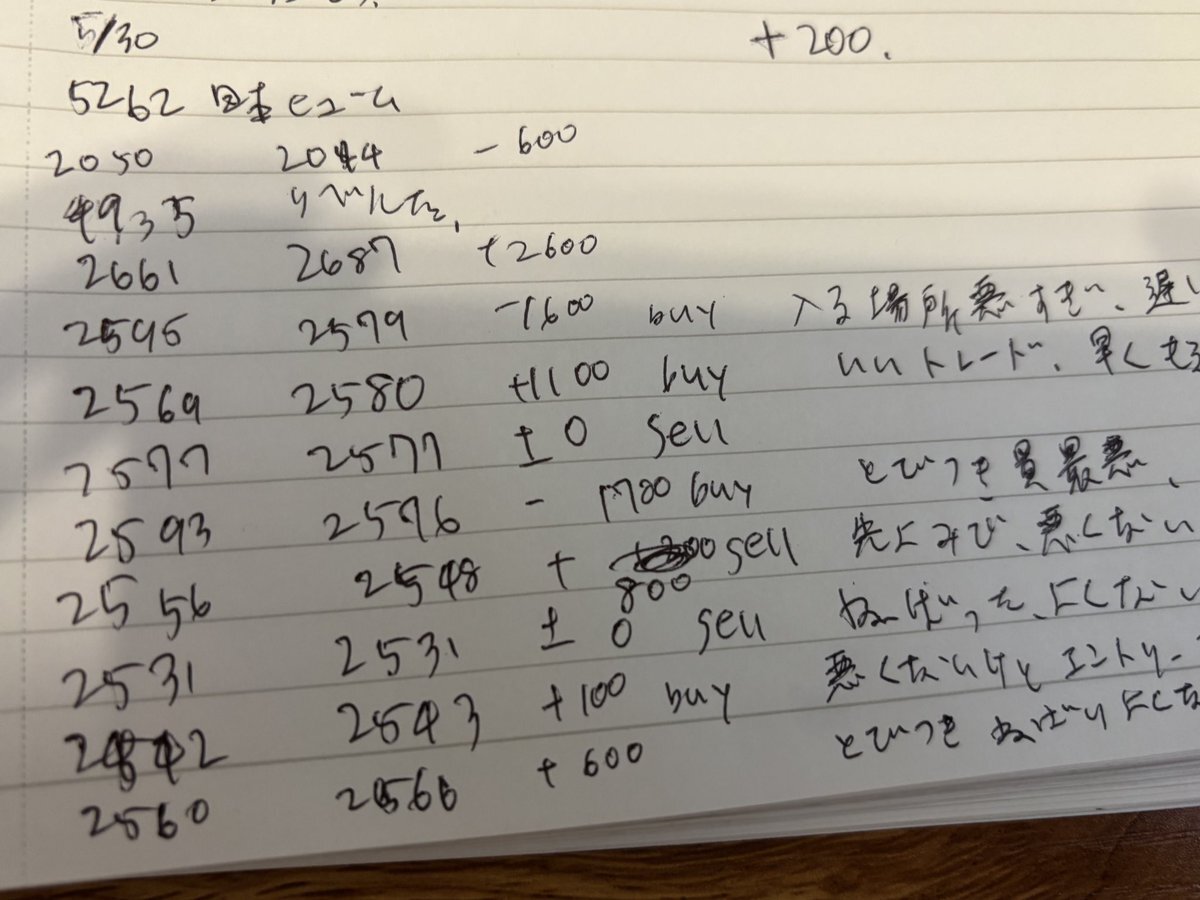 5/30 +200.
5262 日本ヒューム
2050 2044 -600
4935 リベルタ,
2661 2687 +2600
2595 2579 -1600 buy 入る場所悪すぎ、遅い
2569 2580 +1100 buy いいトレード、早くも
2577 2577 ±0 sell
2593 2576 - 1700 buy とびつき買最悪、
2556 2548 + 800 sell 先よみで、悪くない
2531 2531 ±0 sell ねばった、よくない
2542 2543 +100 buy 悪くないけどエントリー
2560 2566 +600 とびつき ねばりよくな